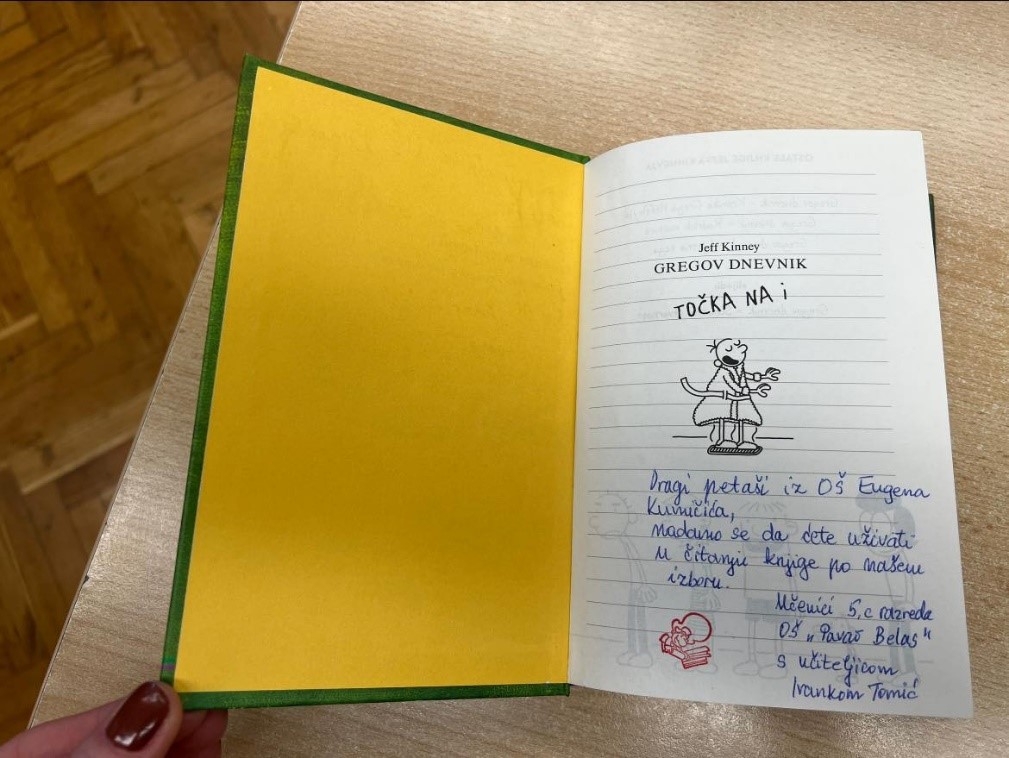 Jeff Kinney
GREGOV DNEVNIK
TOČKA NA i
Dragi petaši iz OŠ Eugena
Kumičića,
nadamo se da ćete uživati
u čitanju knjige po našem
izboru.
Učenici 5. c razreda
OŠ „Pavao Belas"
s učiteljicom
Ivankom Tomić